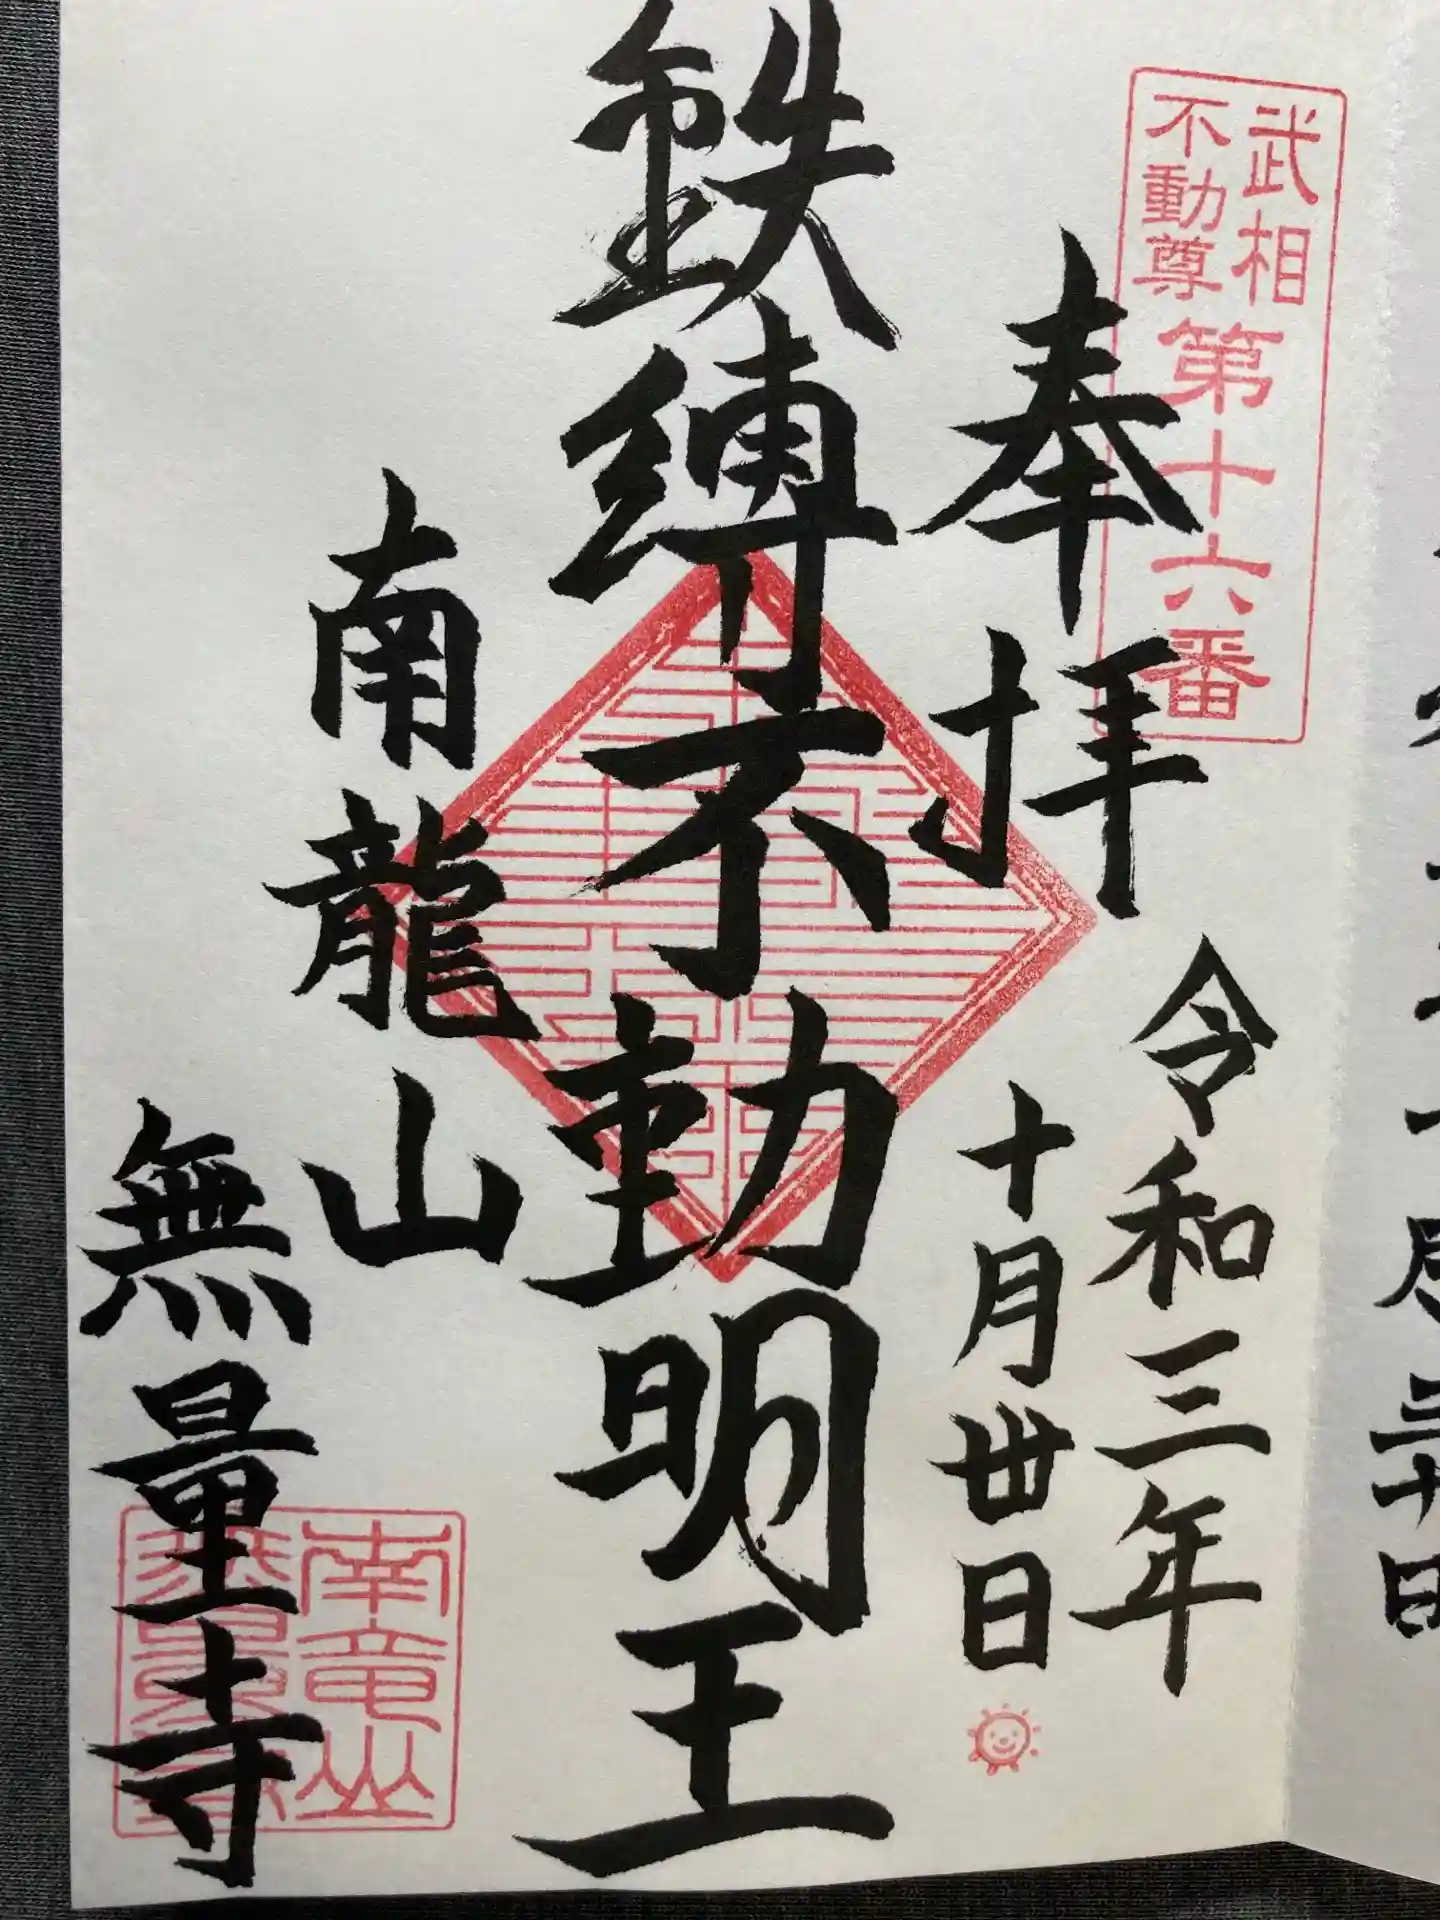 武相
不動尊
第十六番
奉拝
令和三年
十月丗日
鉄縛不動明王
南龍山
無量寺
南竜山
無量寺